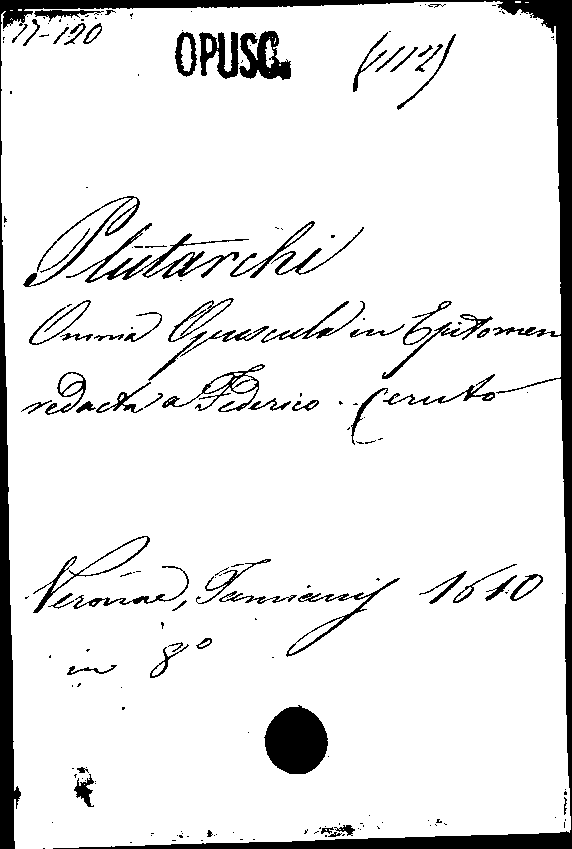 77-120 OPUSC. (1112)
Plutarchi
Omnia Opuscula in Epitomen
redacta a Federico Ceruto
Veronae, Tamianij 1610
in 8º